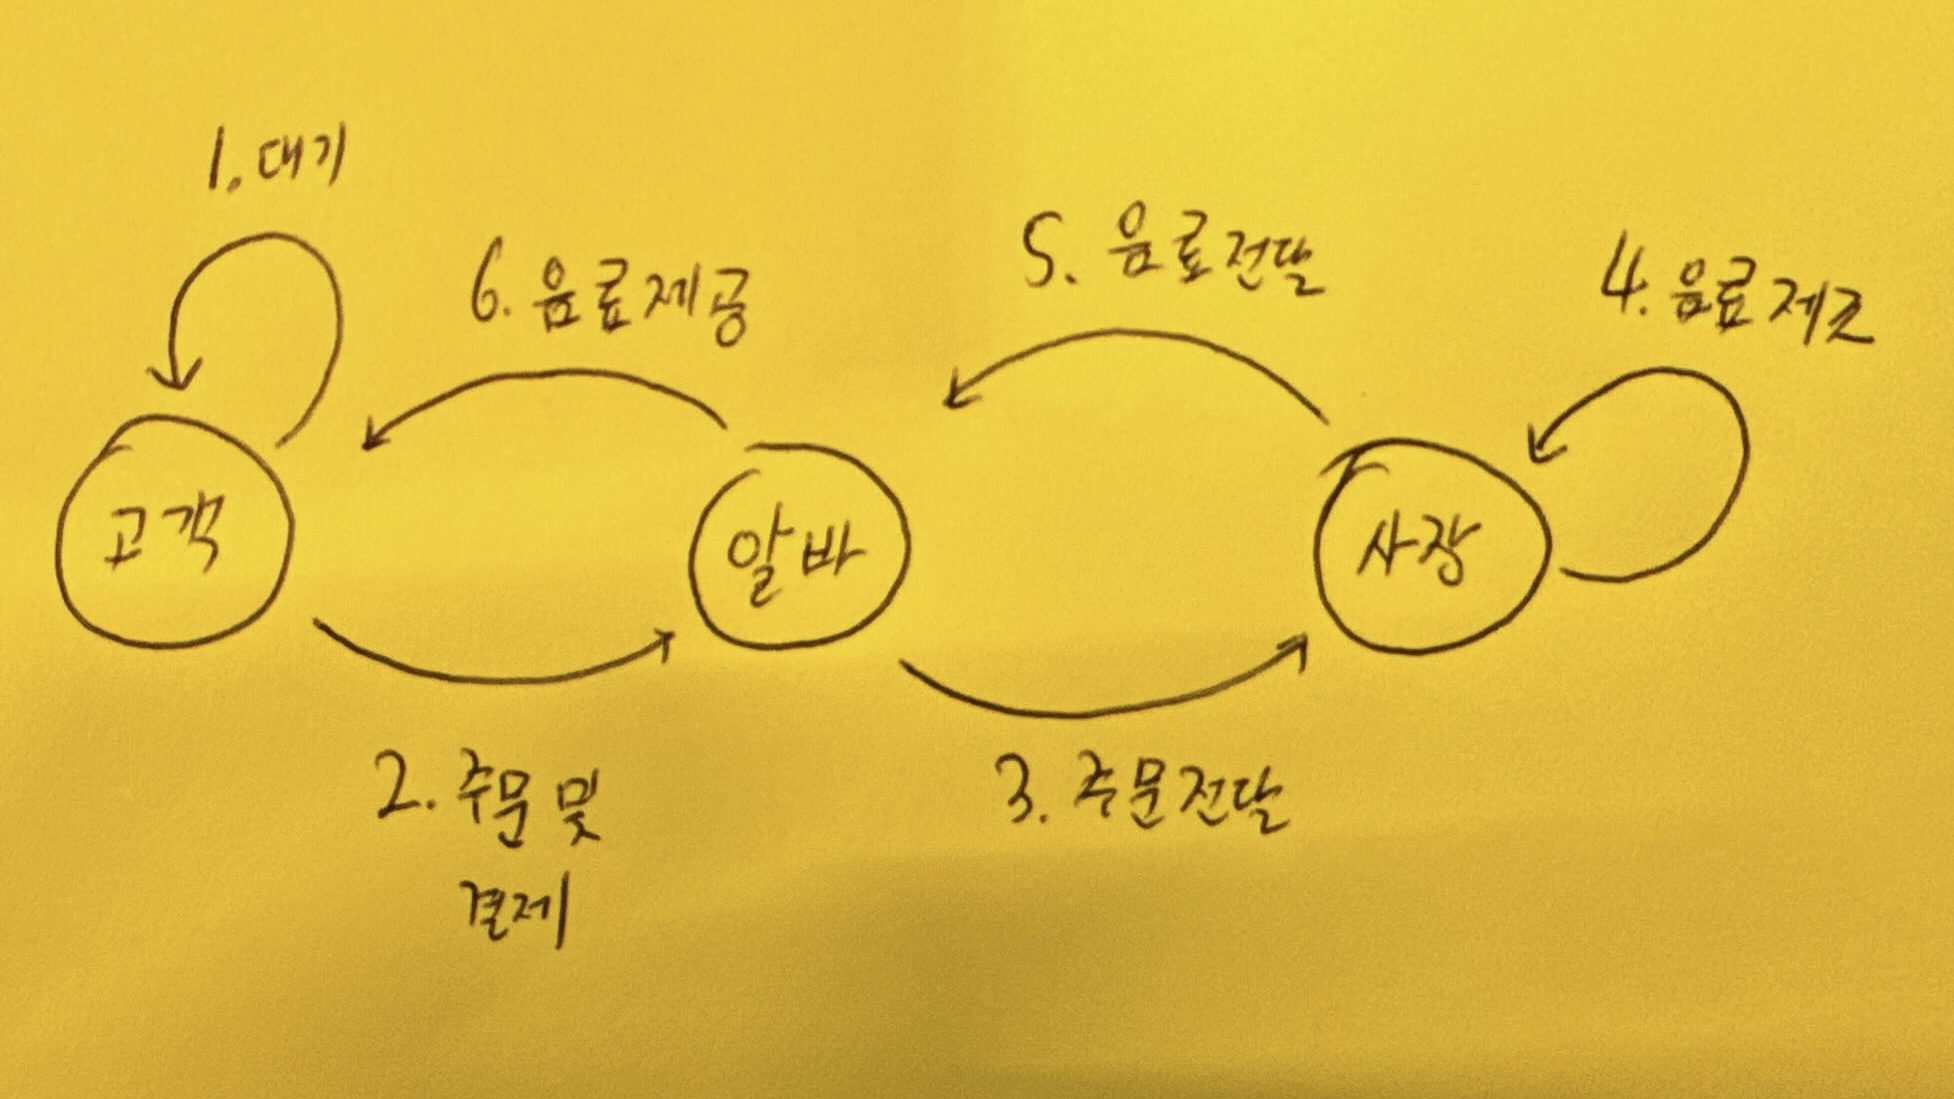 1. 대기
6. 음료제공
5. 음료전달
4. 음료제조
고객
알바
사장
2. 주문 및
결제
3. 주문전달